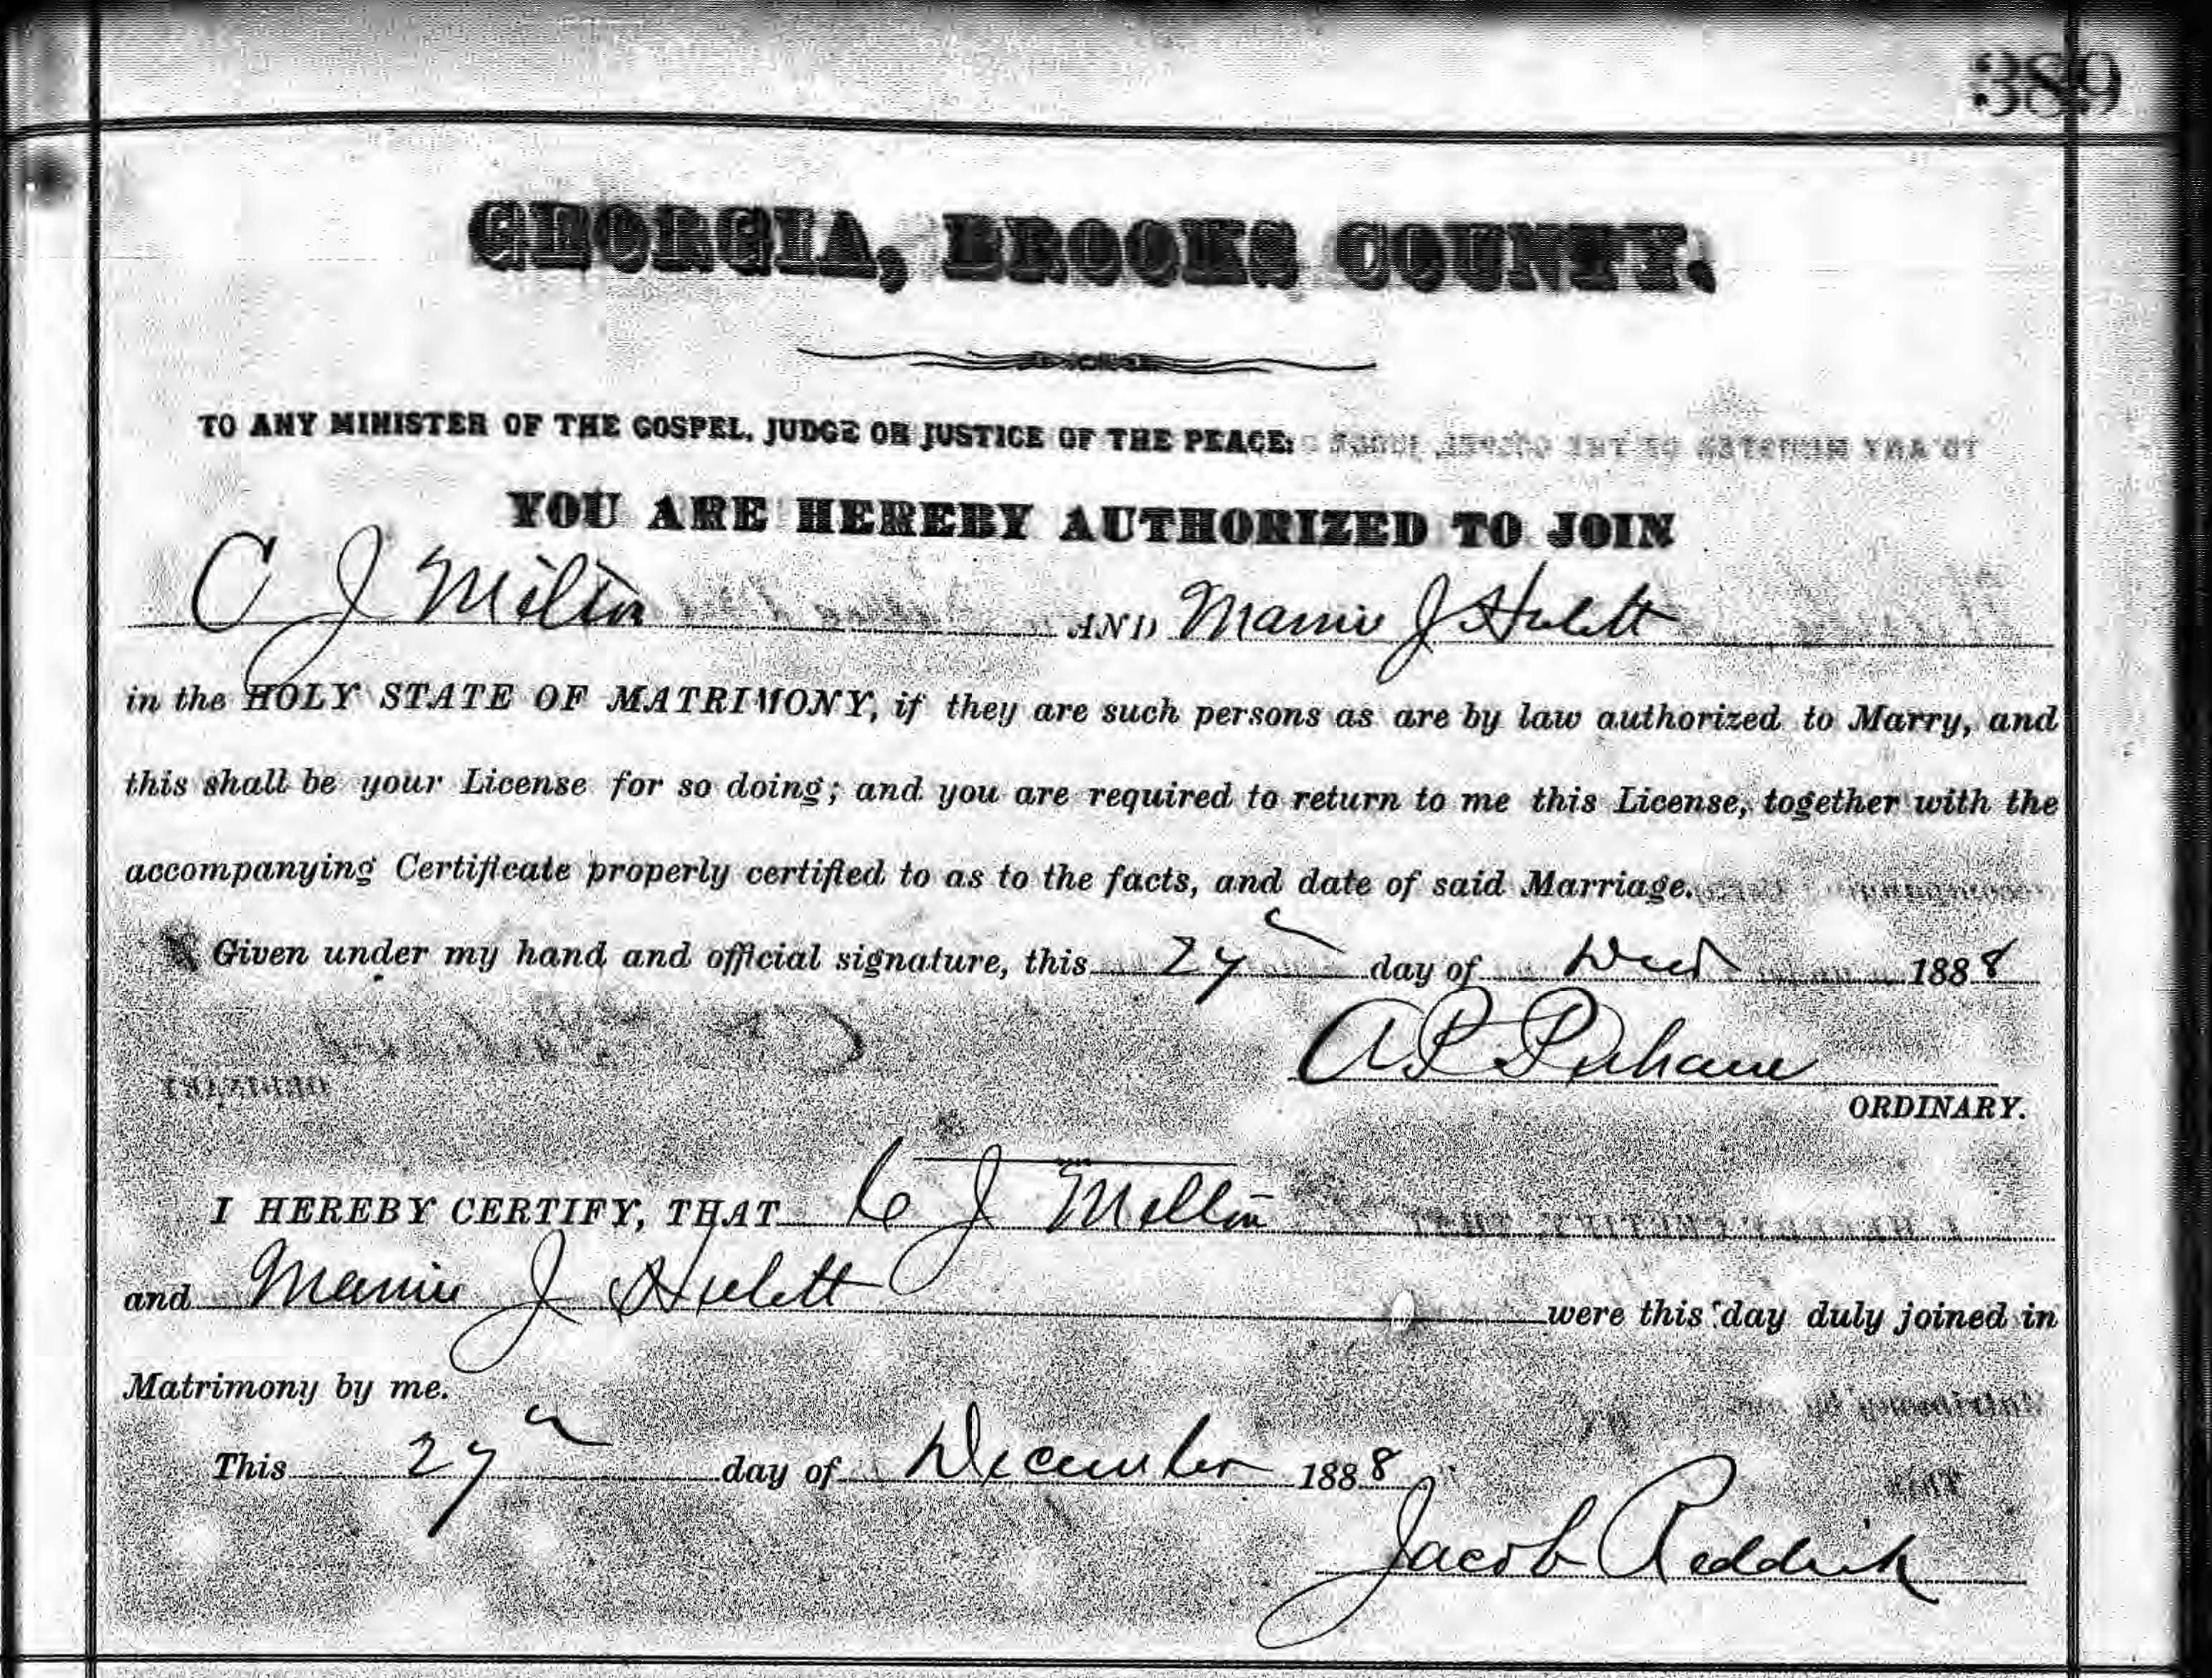 389
GEORGIA, BROOKS COUNTY.
TO ANY MINISTER OF THE GOSPEL, JUDGE OR JUSTICE OF THE PEACE:
YOU ARE HEREBY AUTHORIZED TO JOIN
C J Milton AND Mamie J Hulett
in the HOLY STATE OF MATRIMONY, if they are such persons as are by law authorized to Marry, and
this shall be your License for so doing; and you are required to return to me this License, together with the
accompanying Certificate properly certified to as to the facts, and date of said Marriage.
Given under my hand and official signature, this 27 day of 1888
A P Perham
ORDINARY.
I HEREBY CERTIFY, THAT C J
and Mamie J Hulett were this day duly joined in
Matrimony by me.
This 27 day of December 1888
Jacob Reddick